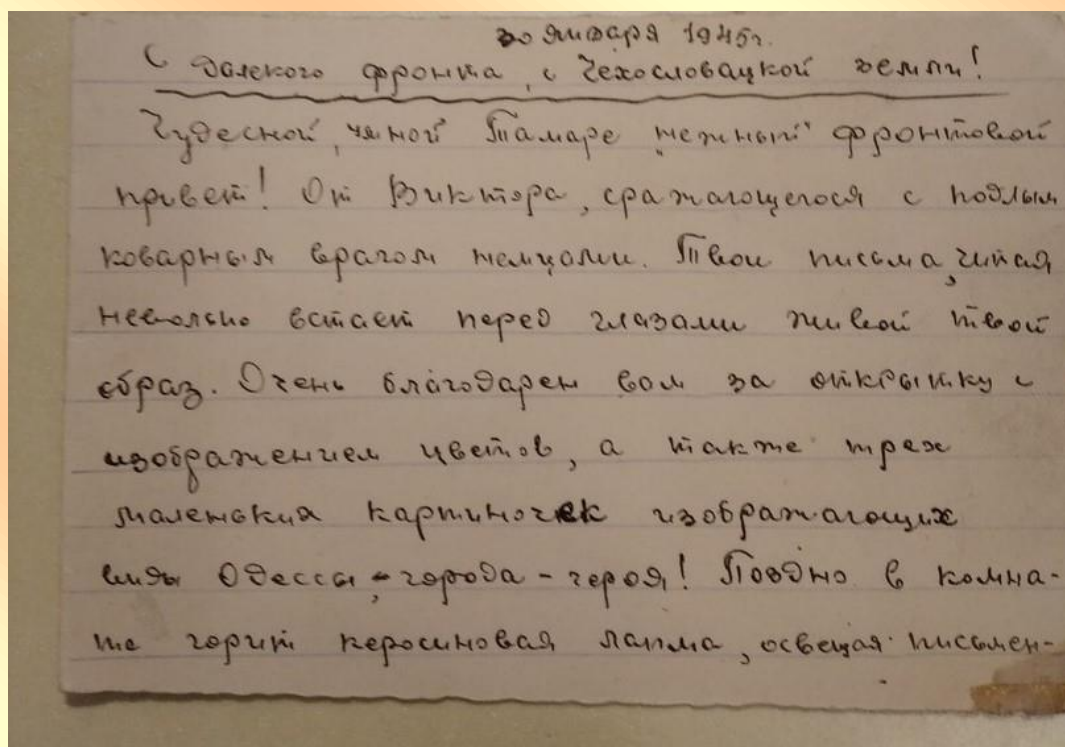 30 января 1945г.
С далекого фронта, с Чехословацкой земли!
Чудесной, милой Тамаре "нежный" фронтовой
привет! От Виктора, сражающегося с подлым
коварным врагом немцами. Твои письма, читая
невольно встает перед глазами живой твой
образ. Очень благодарен вам за открытку с
изображением цветов, а также трех
маленьких картиночек изображающих
виды Одессы, - города - героя! Поздно в комна-
те горит керосиновая лапма, освещая письмен-